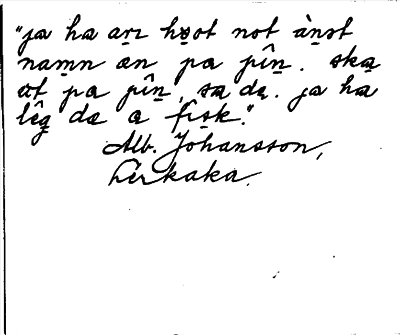 "ja ha arı hŏot not ànst
namn æn pa pîn. ska
æt pa pîn, sa da. ja ha
lêg da a fisk."
Alb. Johansson,
Lerkaka.